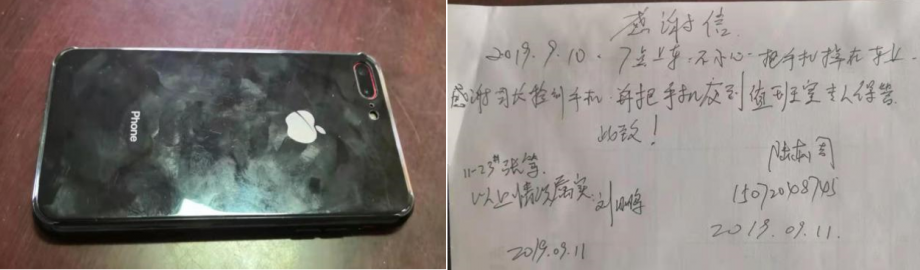 iPhone
感谢信
2019.9.10.7点上车.不小心把手机掉在车上.
感谢司长捡到手机.再把手机交到值班室专人保管.
此致!
11-23# 张
以上情况属实
2019.09.11
2019.09.11.